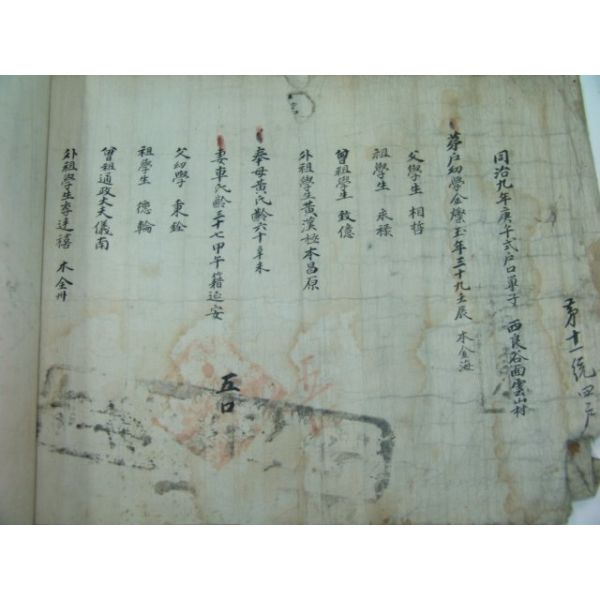 同治九年庚午式戶口單子 西良谷面雲山村
第十一統四戶
第戶幼學金燦玉年三十九壬辰 本金海
父學生 相哲
祖學生 永祿
曾祖學生 致億
外祖學生黃漢極本昌原
奉母黃氏齡六十辛未
妻車氏齡三十七甲午籍延安
父幼學 秉銓
祖學生 德輪
曾祖通政大夫儀南
外祖學生李達禧 本全州
五口